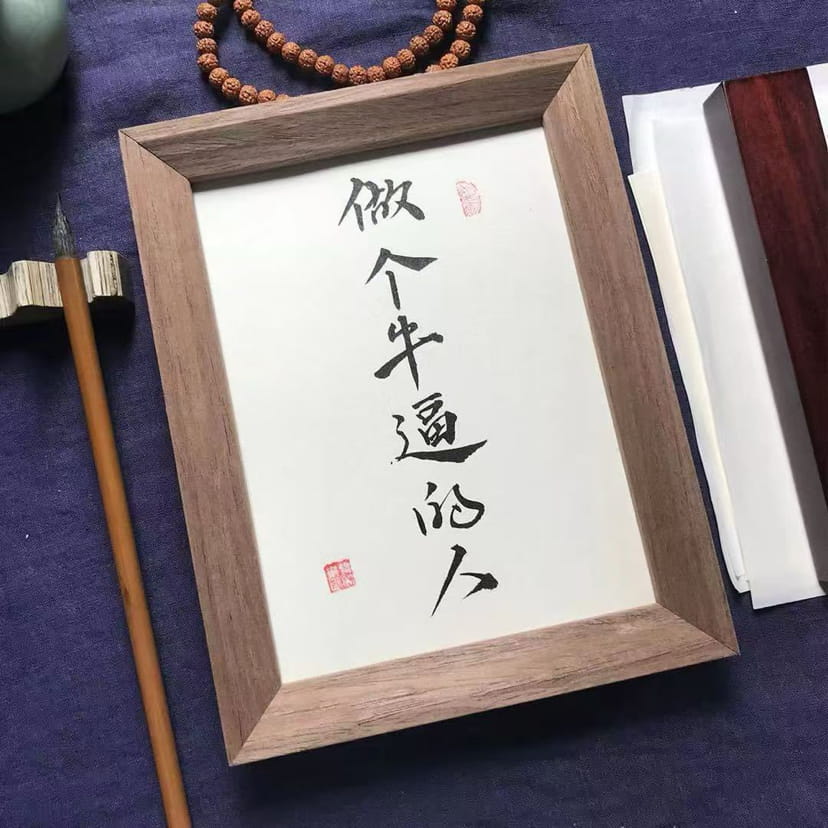 做个牛逼的人